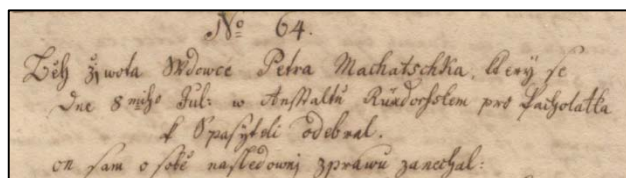 No 64.
Běh žiwota Wdowce Petra Machatschka, ktery se
dne 8mého Júl: w Anstaltu Rüxdorfskem pro Pacholatka
k Spasyteli odebral.
on sam o sobě nasledownj zprawu zanechal: